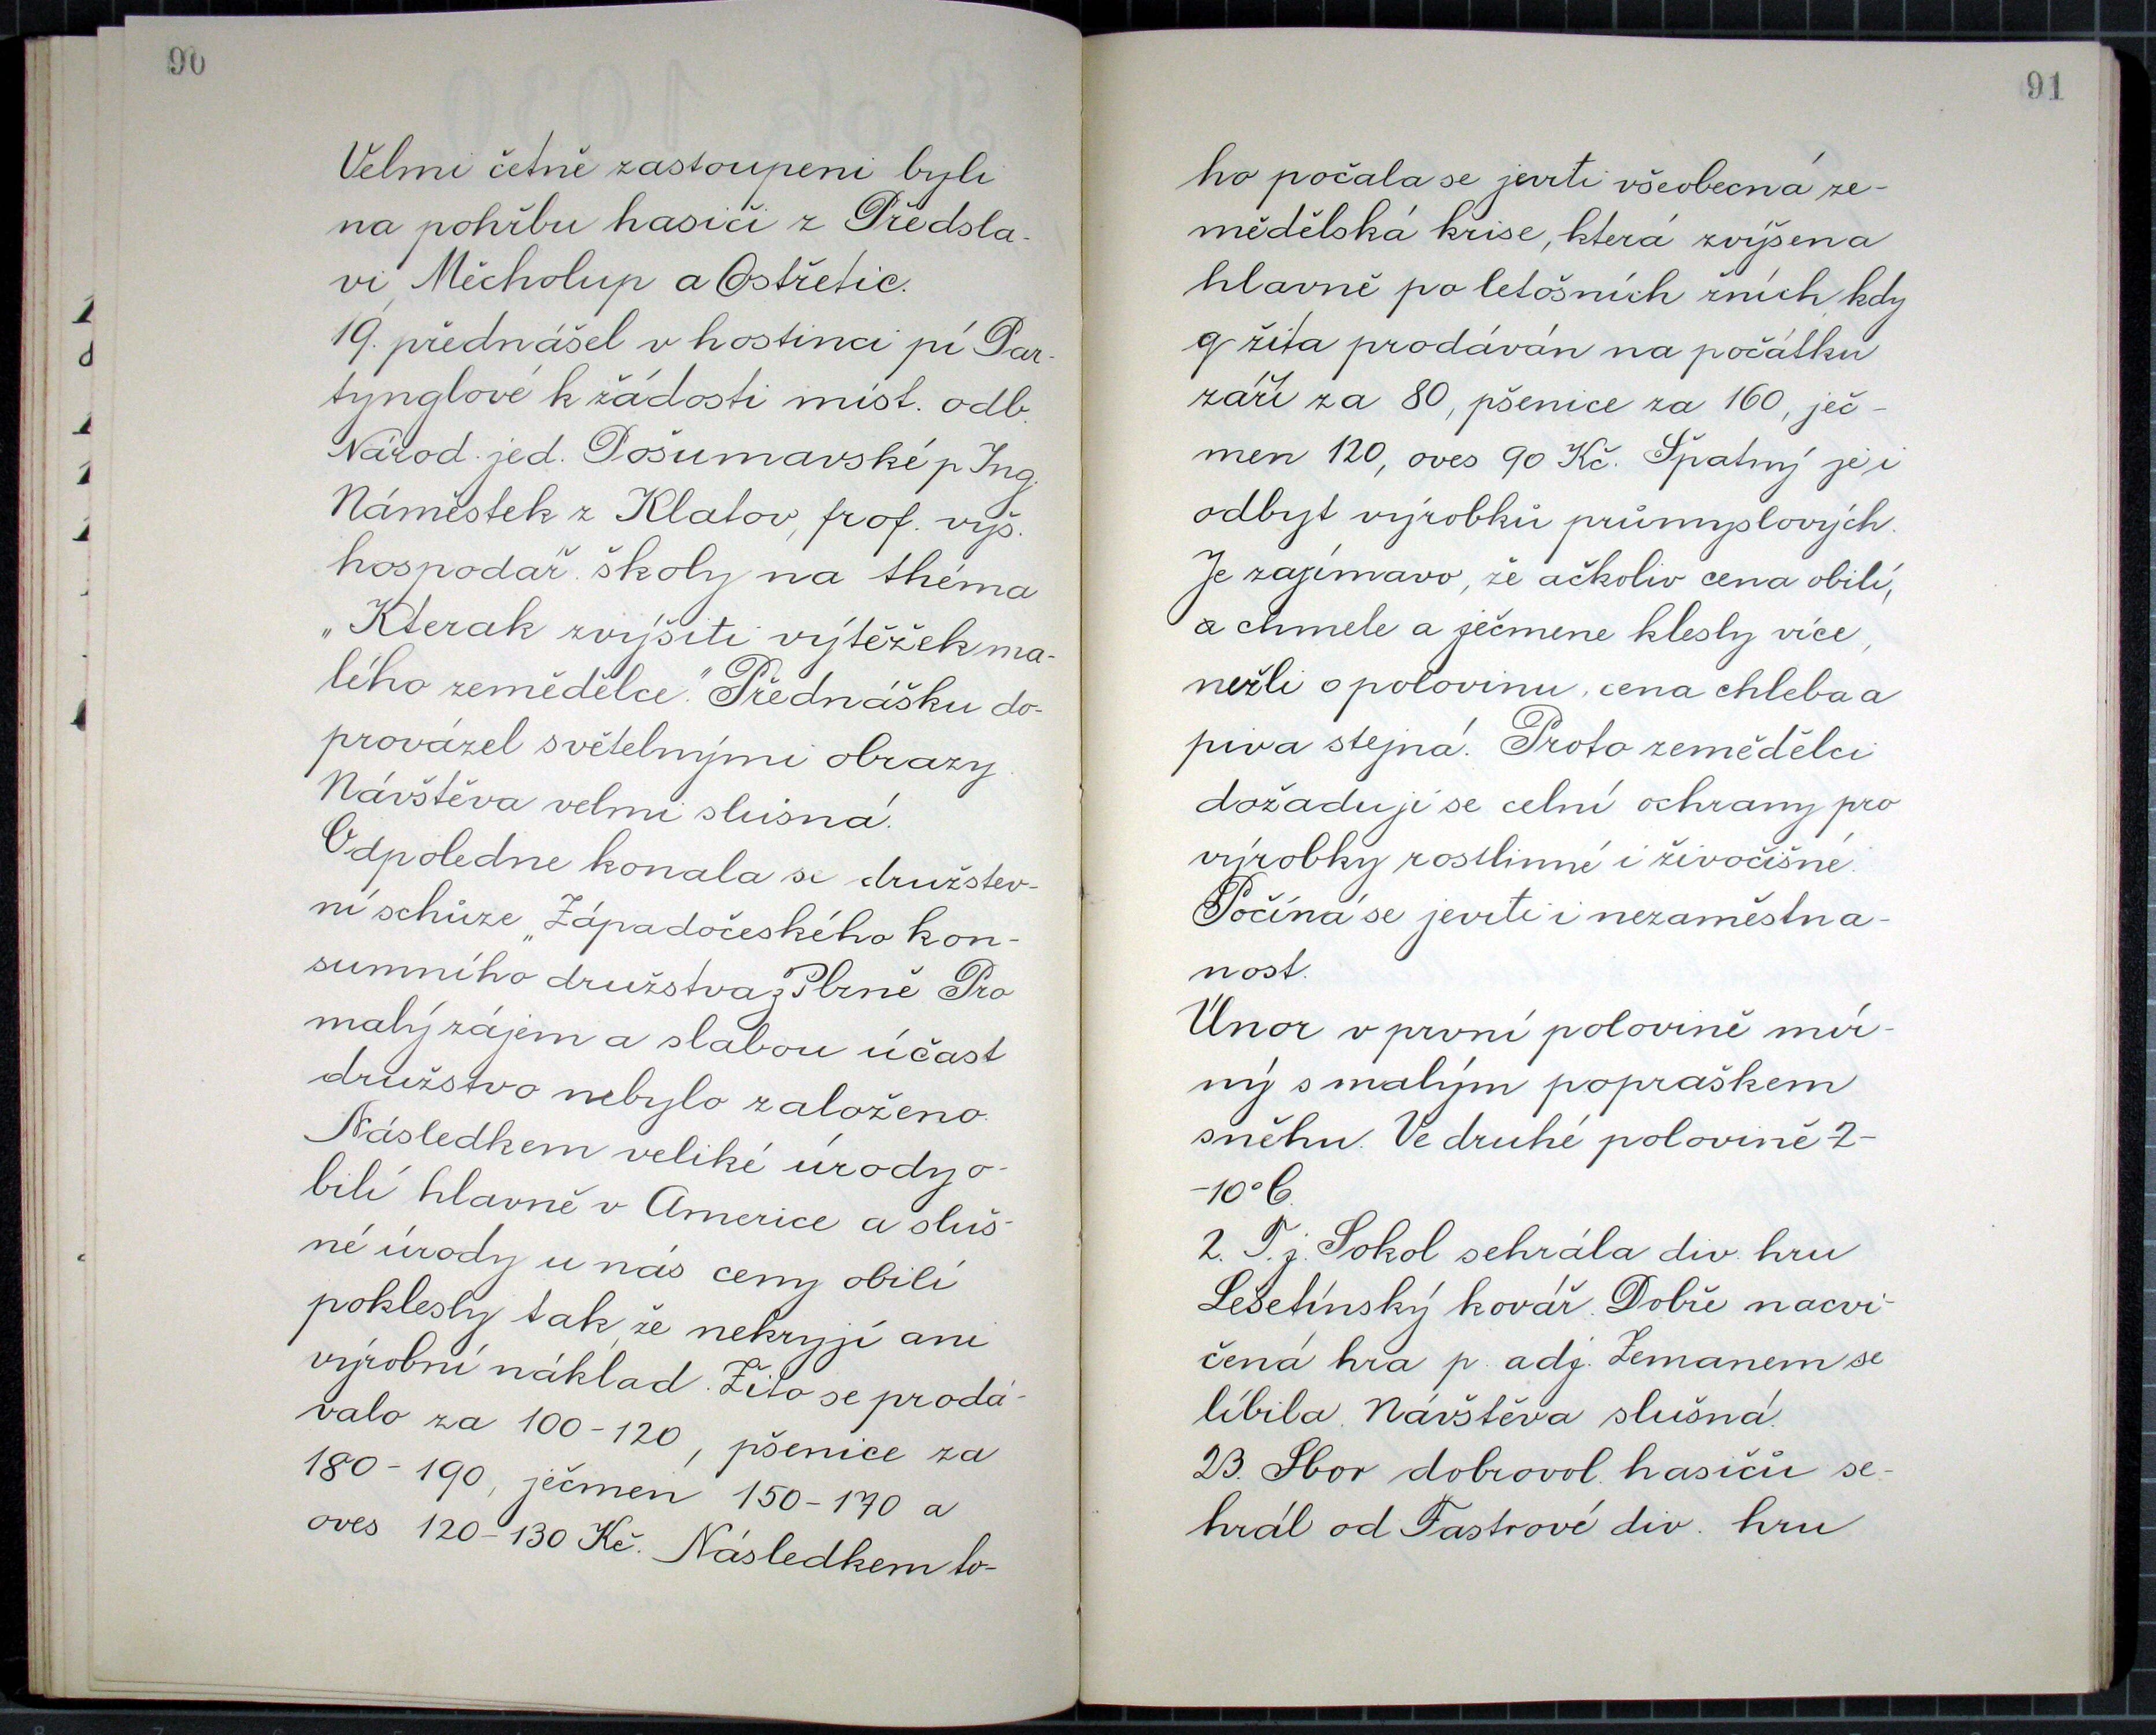 90
Velmi četně zastoupeni byli
na pohřbu hasiči z Předsla-
vi, Měcholup a Ostřetic.
19. přednášel v hostinci pí Par-
tynglové k žádosti míst. odb.
Národ. jed. Pošumavské p. Ing.
Náměstek z Klatov, prof. vyš.
hospodář. školy na théma
„Kterak zvýšiti výtěžek ma-
lého zemědělce." Přednášku do-
provázel světelnými obrazy.
Návštěva velmi slušná.
Odpoledne konala se družstev-
ní schůze „Západočeského kon-
sumního družstva z Plzně Pro
malý zájem a slabou účast
družstvo nebylo založeno.
Následkem veliké úrody o-
bilí hlavně v Americe a sluš-
né úrody u nás ceny obilí
poklesly tak, že nekryjí ani
výrobní náklad. Žito se prodá-
valo za 100-120, pšenice za
180-190, ječmen 150-170 a
oves 120-130 Kč. Následkem to-
91
ho počala se jeviti všeobecná ze-
mědělská krise, která zvýšena
hlavně po letošních žních, kdy
q žita prodáván na počátku
září za 80, pšenice za 160, ječ-
men 120, oves 90 Kč. Špatný je i
odbyt výrobků průmyslových.
Je zajímavo, že ačkoliv cena obilí,
a chmele a ječmene klesly více,
nežli o polovinu, cena chleba a
piva stejná. Proto zemědělci
dožadují se celní ochrany pro
výrobky rostlinné i živočišné.
Počíná se jeviti i nezaměstna-
nost.
Únor v první polovině mír-
ný s malým popraškem
sněhu. Ve druhé polovině 2-
-10°C.
2. T. j. Sokol sehrála div. hru
Lešetínský kovář. Dobře nacvi-
čená hra p. adj. Zemanem se
líbila. Návštěva slušná.
23. Sbor dobrovol. hasičů se-
hrál od Fastrové div. hru